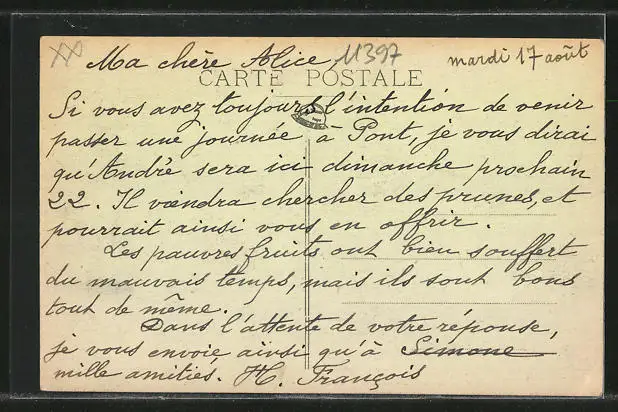 XX Ma chère Alice, 11397 mardi 17 août
CARTE POSTALE
Si vous avez toujours l'intention de venir
passer une journée à Pont, je vous dirai
qu'André sera ici dimanche prochain
22. Il viendra chercher des prunes, et
pourrait ainsi vous en offrir.
Les pauvres fruits ont bien souffert
du mauvais temps, mais ils sont bons
tout de même.
Dans l'attente de votre réponse,
je vous envoie ainsi qu'à Simone
mille amitiés. H. François